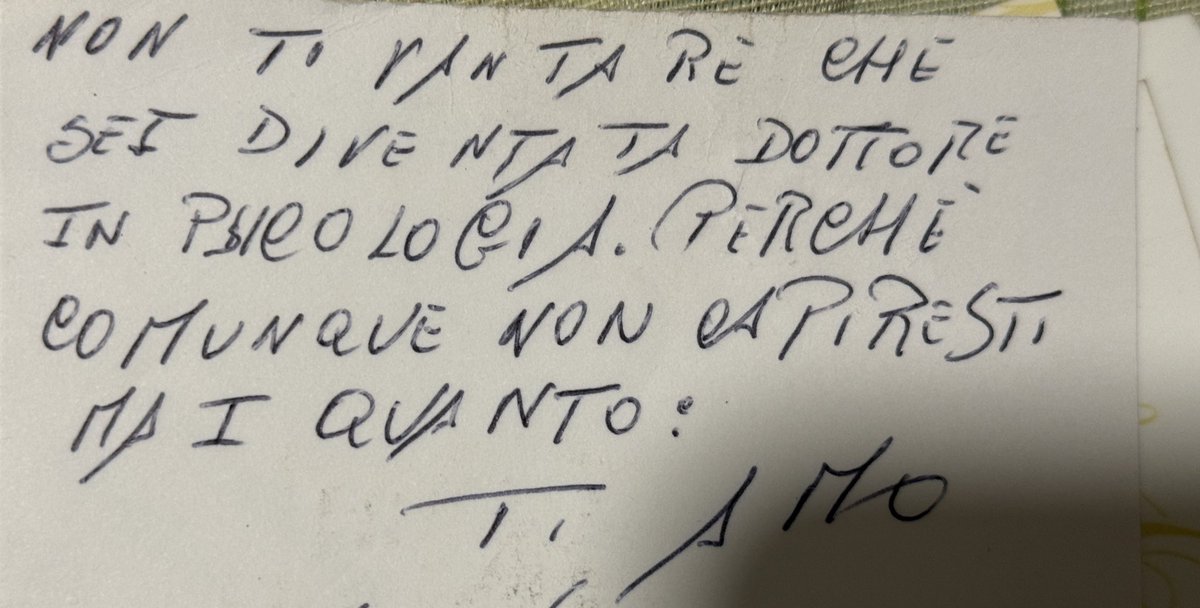 NON TI VANTARE CHE
SEI DIVENTATA DOTTORE
IN PSICOLOGIA. PERCHÈ
COMUNQUE NON CAPIRESTI
MAI QUANTO:
TI AMO